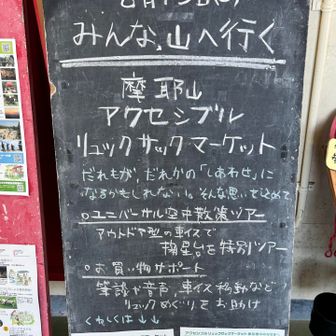 みんな、山へ行く
摩耶山
アクセシブル
リュックサックマーケット
だれもが、だれかの「しあわせ」に
なるかもしれない。そんな思いを込めて
○ユニバーサル空中散策ツアー
アウトドア型の車イスで
掬星台を特別ツアー
○お買い物サポート
筆談や音声、車イス移動など
リュックめぐりをお助け
くわしくは山山